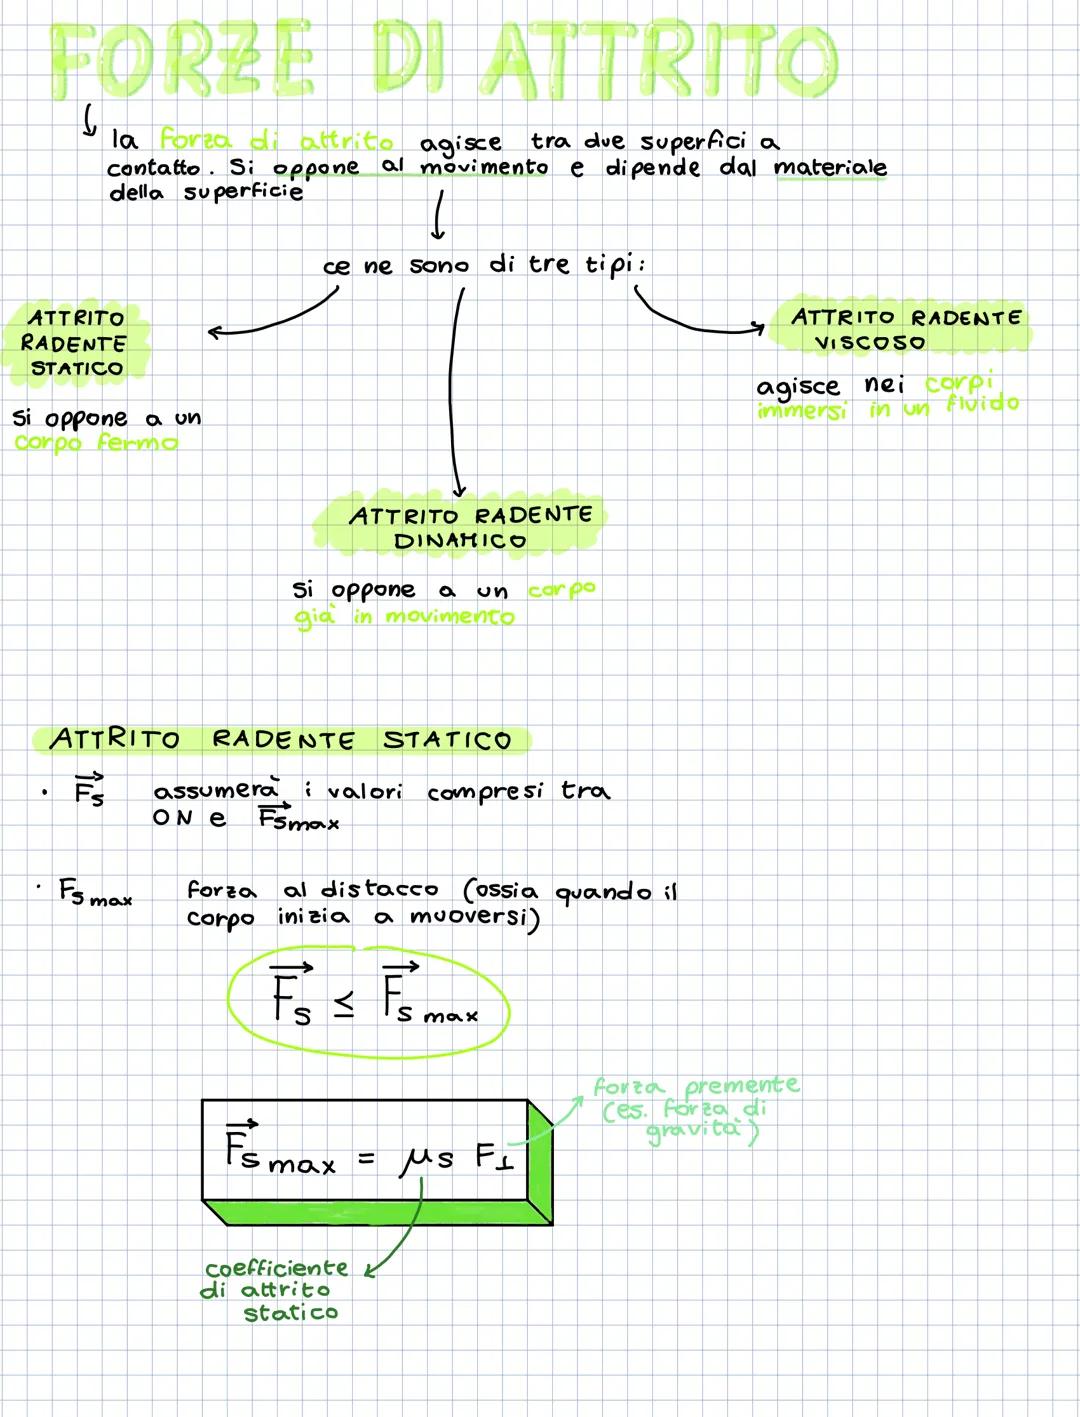 FORZE DI ATTRITO
la forza di attrito agisce tra due superfici a
contatto. Si oppone al movimento e dipende dal materiale
della superficie
ce ne sono di tre tipi:
ATTRITO
RADENTE
STATICO
si oppone a un
corpo fermo
ATTRITO RADENTE
VISCOSO
agisce nei corpi
immersi in un fluido
ATTRITO RADENTE
DINAMICO
si oppone a un corpo
già in movimento
ATTRITO RADENTE STATICO
• F⃗s assumerà i valori compresi tra
0N e F⃗s max
• Fs max forza al distacco (ossia quando il
corpo inizia a muoversi)
F⃗s ≤ F⃗s max
forza premente
(es. forza di
gravità)
F⃗s max = μs F⊥
coefficiente
di attrito
statico